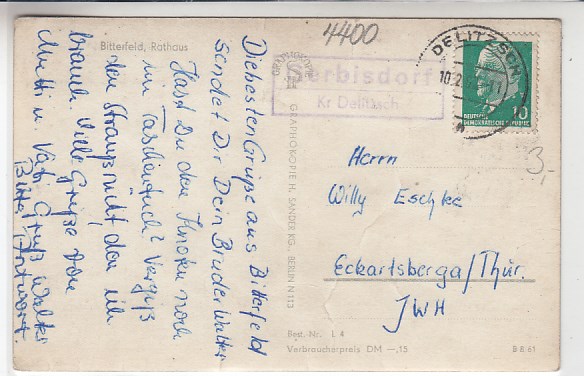 Bitterfeld, Rathaus
4400
DELITZSCH
10.2.
DEUTSCHE
DEMOKRATISCHE REPUBLIK
10
Kr Delitzsch
GRAPHOKOPIE H. SANDER KG., BERLIN N 113
Die besten Grüße aus Bitterfeld
sendet Dir Dein Bruder Walter
Hast Du den Knoten noch
im Taschentuch? Vergiß
den Strauß nicht, den ich
brauch. Viele Grüße von
Mutti u. Vati Gruß Walter
Bitte Antwort.
Herrn
Willy Eschke
Eckartsberga/Thür.
JWH
3,-
Best. Nr. L 4
Verbraucherpreis DM -,15
B 8 61